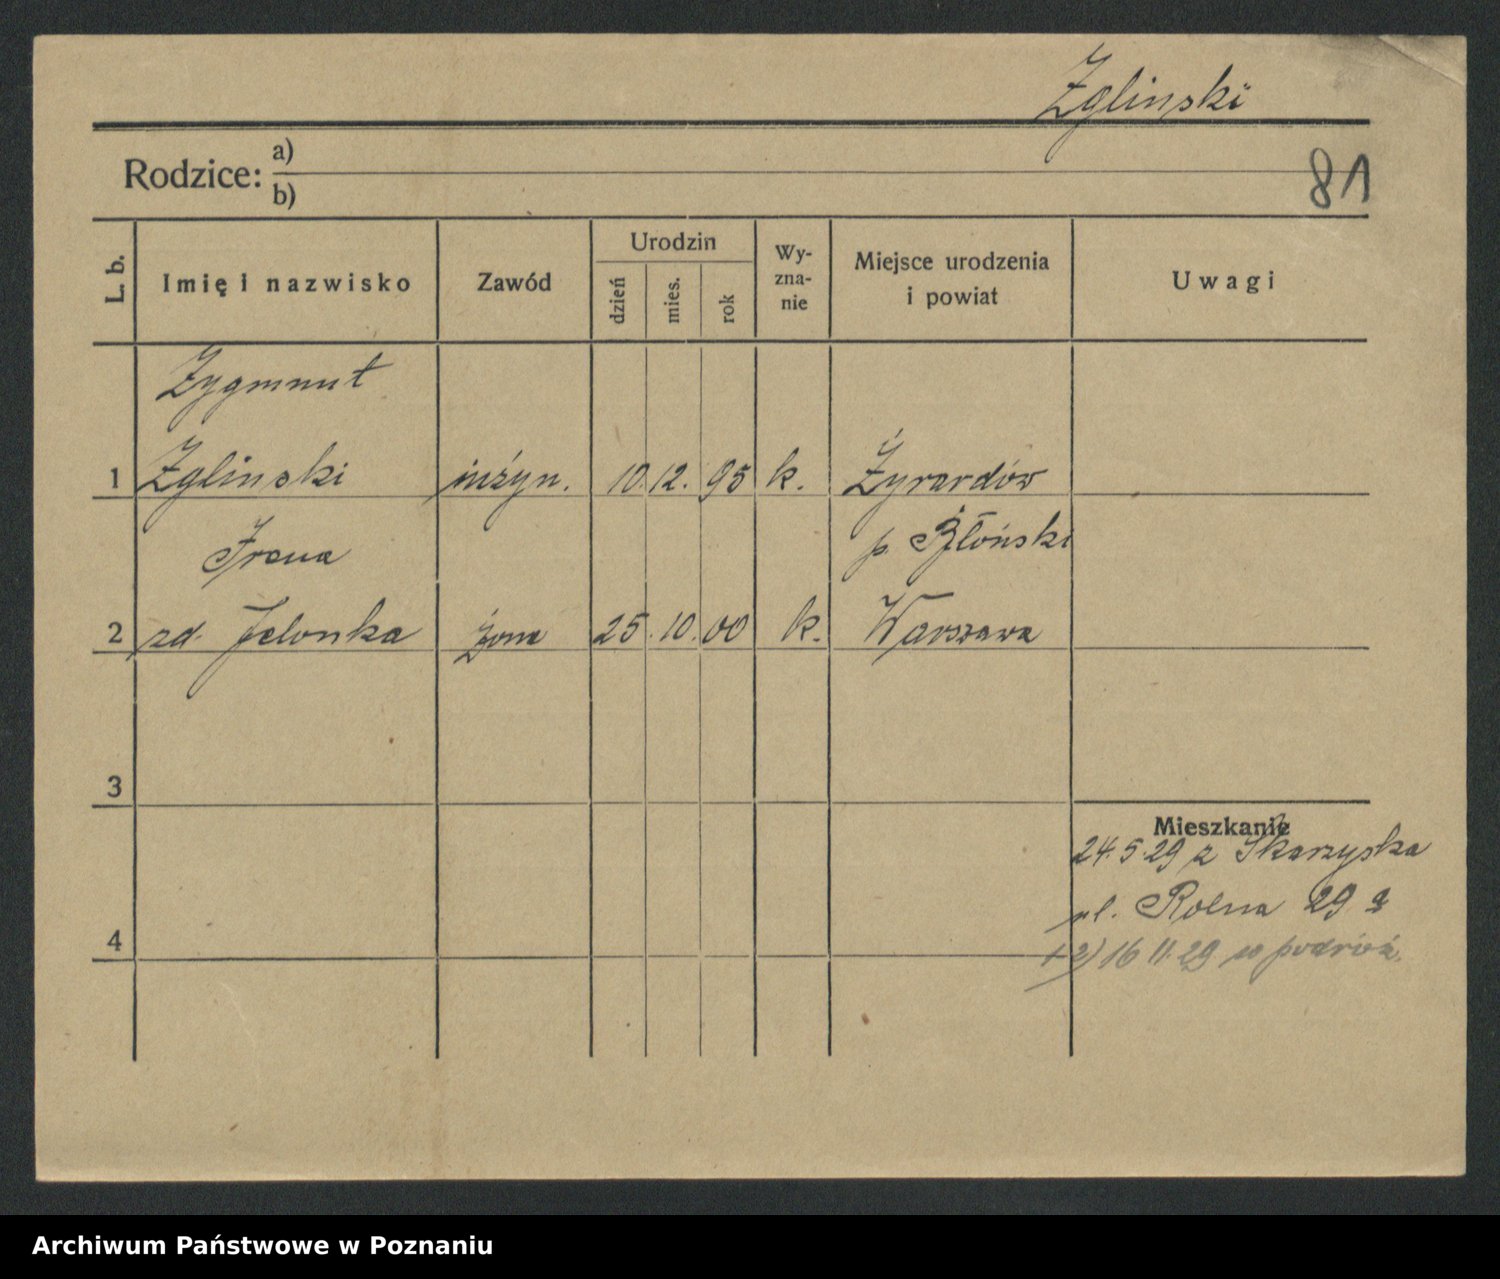 Zglinski
Rodzice: a)
b)
81
L. b.
Imię i nazwisko
Zawód
Urodzin
dzień
mies.
rok
Wy-
zna-
nie
Miejsce urodzenia
i powiat
Uwagi
Zygmunt
1 Zglinski inżyn. 10. 12. 95 k. Żyrardów
p. Błoński
Irena
2 zd. Jelonka żona 25. 10. 00 k. Warszawa
3
Mieszkanie
24.5.29 z Skarzyska
ul. Rolna 29
4
1-2) 16 11.29 w podróż.
Archiwum Państwowe w Poznaniu